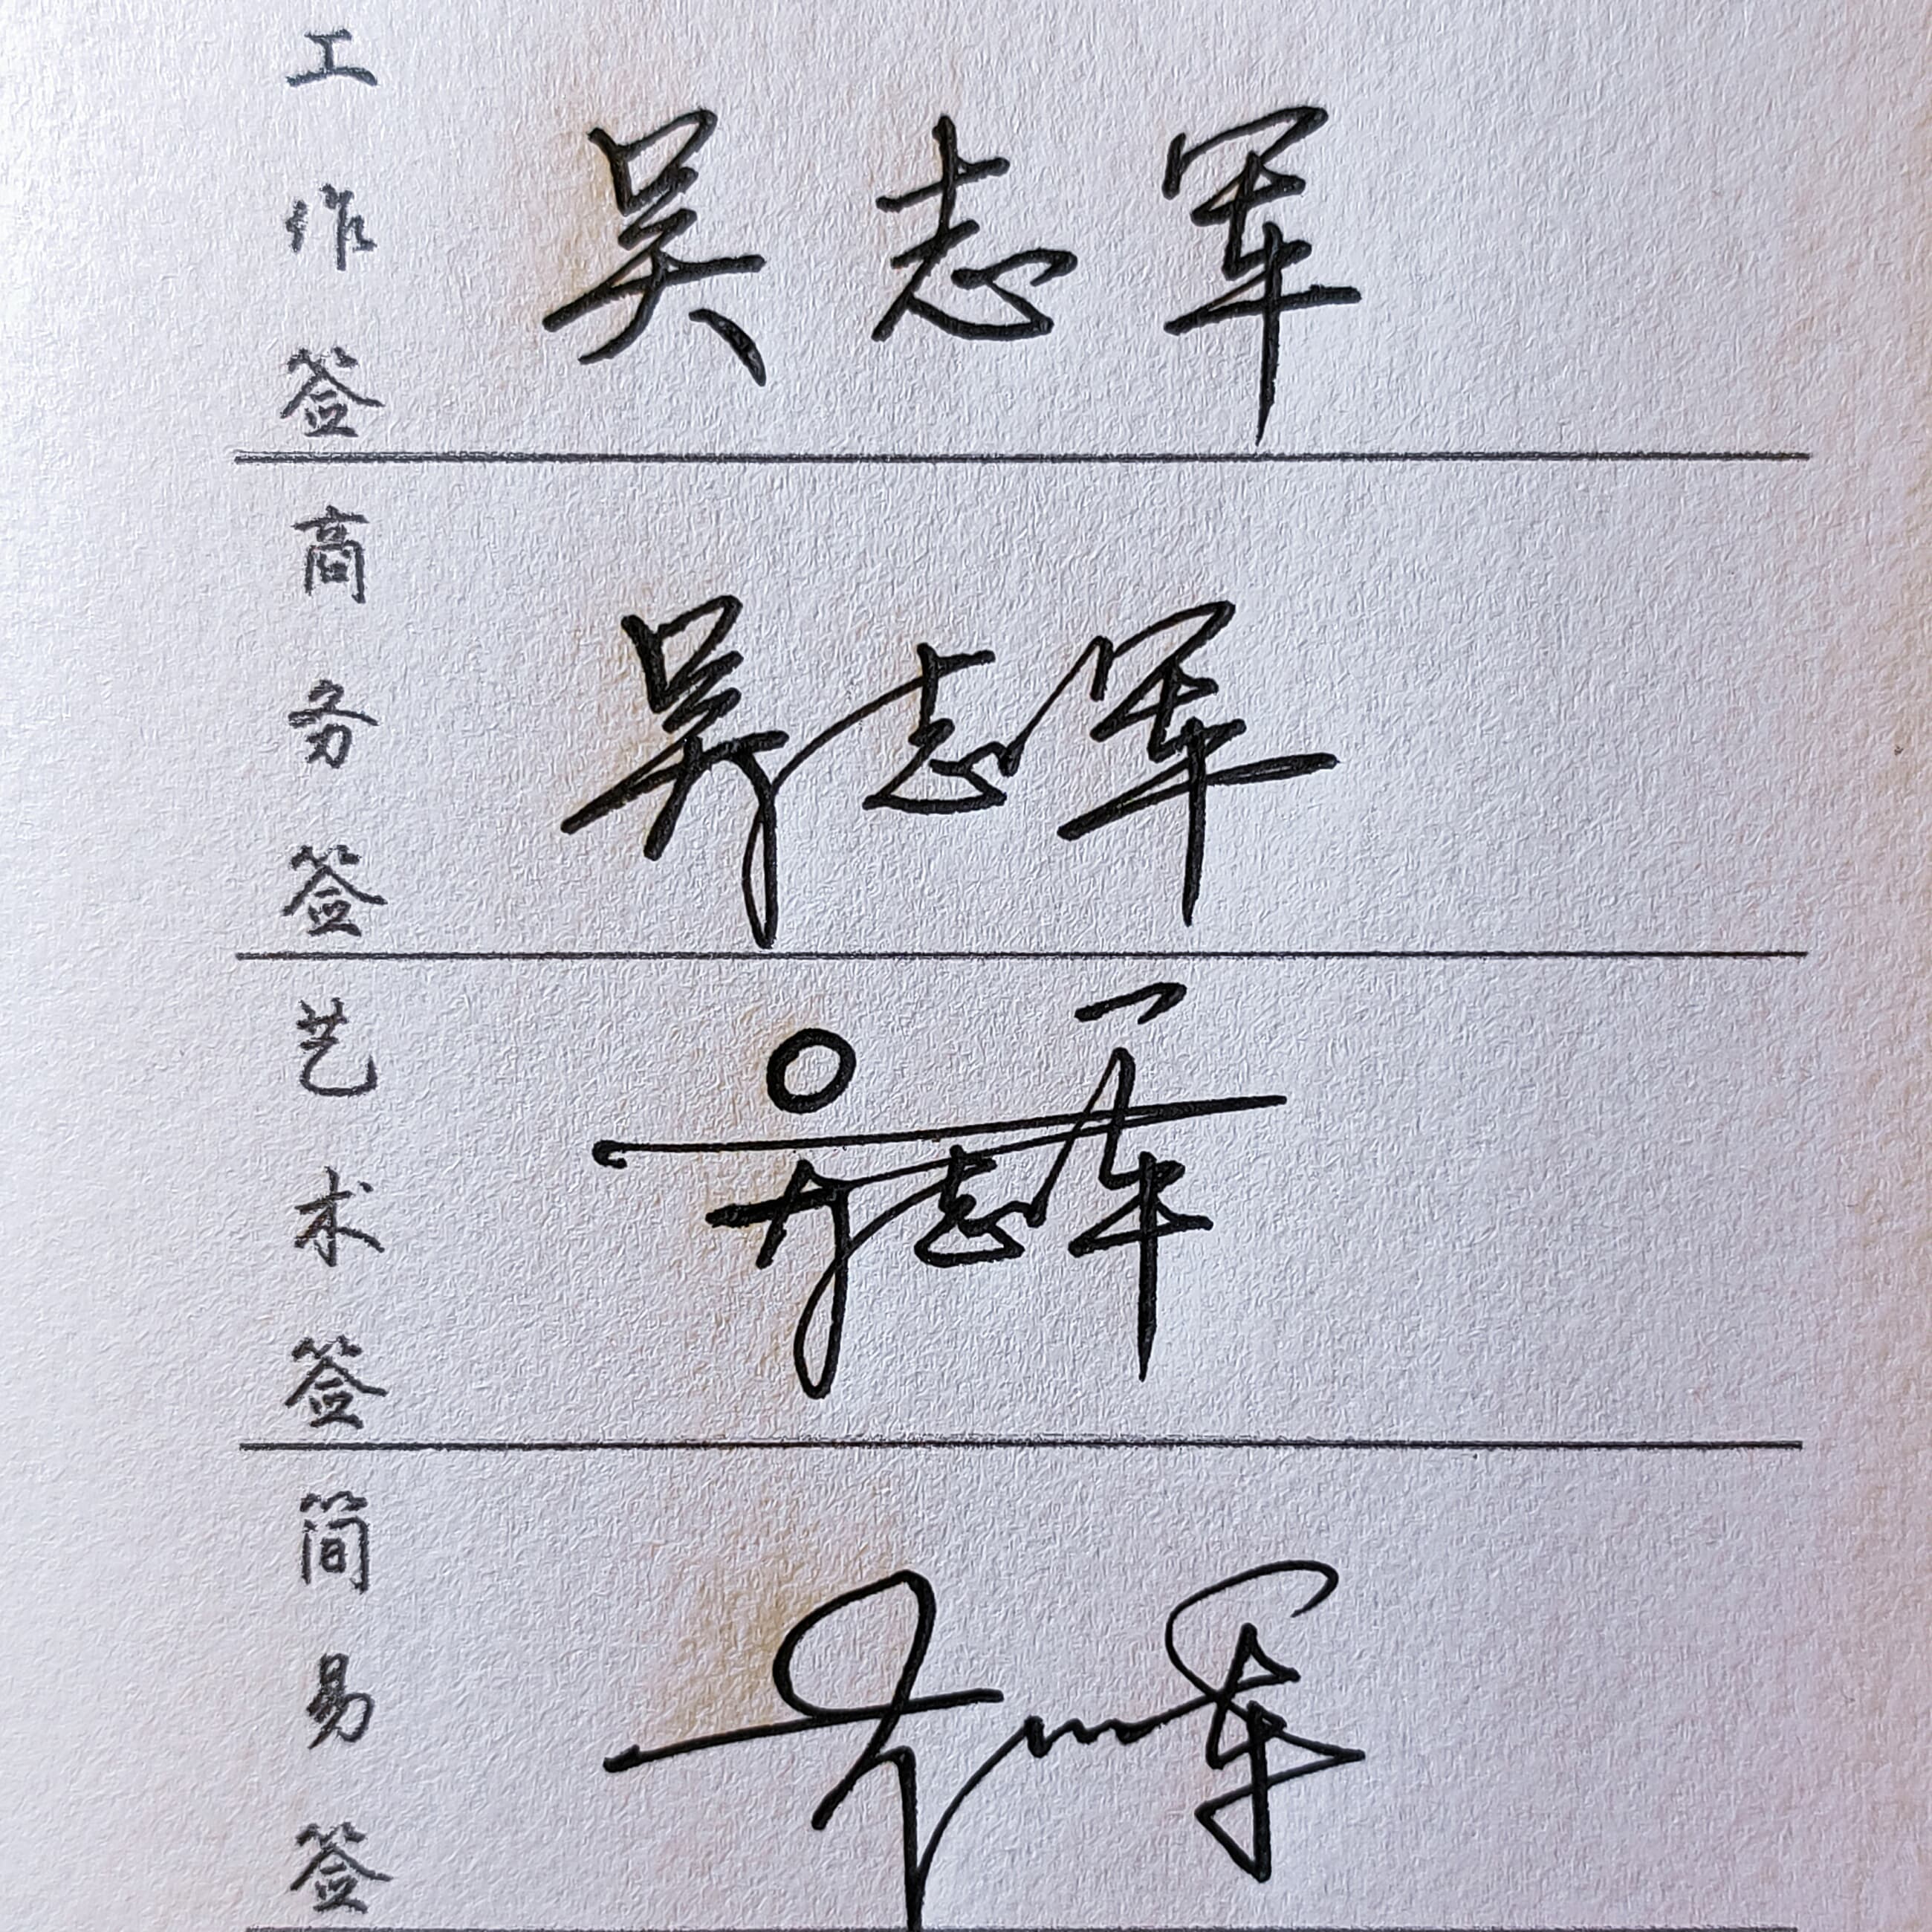 工作签
吴志军
商务签
吴志军
艺术签
吴志军
简易签
吴志军